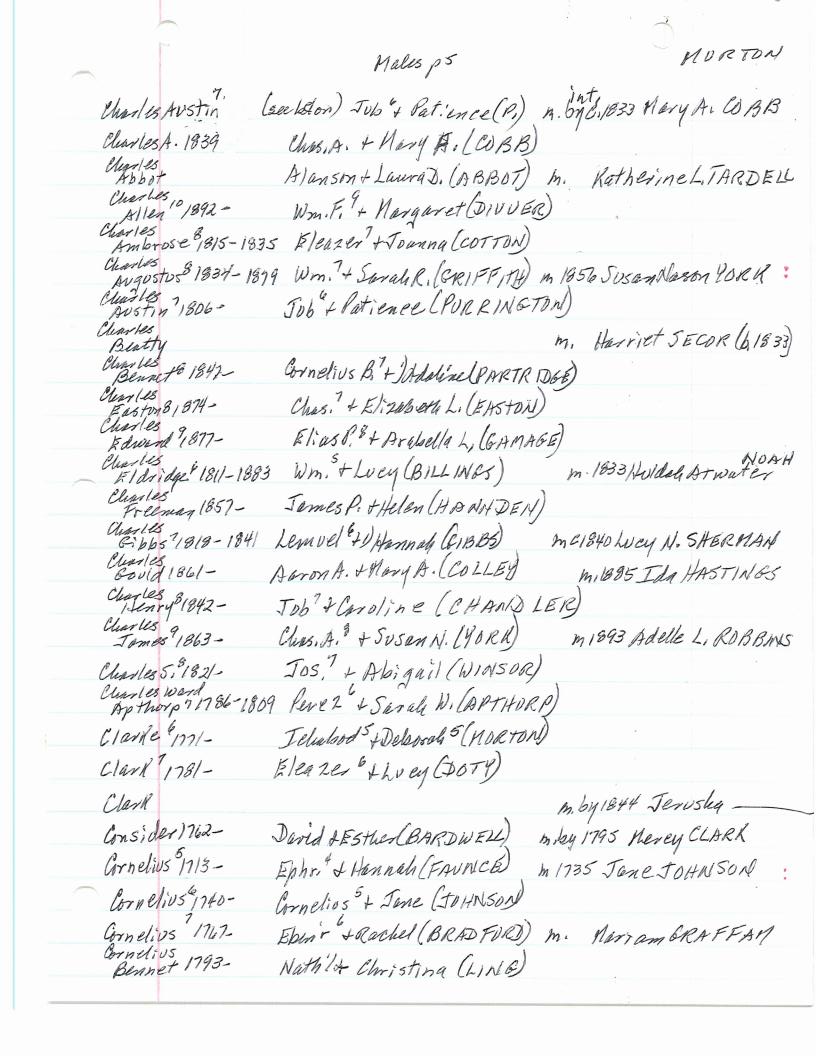 Males p5 MORTON
Charles Austin 7. (see Elston) Job 6 + Patience (P.) m. int by C. 1833 Mary A. COBB
Charles A. 1839 Chas. A. + Mary A. (COBB)
Charles
Abbot Alanson + Laura D. (ABBOT) m. Katherine L. TARDELL
Charles
Allen 10 1892- Wm. F. 9 + Margaret (DIVVER)
Charles
Ambrose 8 1815-1835 Eleazer 7 + Joanna (COTTON)
Charles
Augustus 8 1834-1899 Wm. 7 + Sarah R. (GRIFFITH) m 1856 Susan Nason YORK :
Charles
Austin 7 1806- Job 6 + Patience (PURRINGTON)
Charles
Beatty m. Harriet SECOR (b. 1833)
Charles
Bennet 8 1842- Cornelius B. 7 + 1) Adaline (PARTRIDGE)
Charles
Easton 8 1874- Chas. 7 + Elizabeth L. (EASTON)
Charles
Edward 9 1877- Elias P. 8 + Arabella L. (GAMAGE)
Charles
Eldridge 6 1811-1883 Wm. 5 + Lucy (BILLINGS) m. 1833 Huldah Atwater NOAH
Charles
Freeman 1857- James P. + Helen (HANNDEN)
Charles
Gibbs 7 1818-1841 Lemuel 6 + 1) Hannah (GIBBS) m c 1840 Lucy N. SHERMAN
Charles
Govid 1861- Aaron A. + Mary A. (COLLEY) m. 1885 Ida HASTINGS
Charles
Henry 8 1842- Job 7 + Caroline (CHANDLER)
Charles
James 9 1863- Chas. A. 8 + Susan N. (YORK) m 1893 Adelle L. ROBBINS
Charles S. 8 1821- Jos. 7 + Abigail (WINSOR)
Charles Ward
Apthorp 7 1786-1809 Perez 6 + Sarah W. (APTHORP)
Clarke 6 1771- Ichabod 5 + Deborah 5 (MORTON)
Clark 7 1781- Eleazer 6 + Lucy (DOTY)
Clark m. by 1844 Jerusha
Consider 1762- David + Esther (BARDWELL) m. by 1795 Mercy CLARK
Cornelius 5 1713- Ephr. 4 + Hannah (FAUNCE) m 1735 Jane JOHNSON :
Cornelius 6 1740- Cornelios 5 + Jane (JOHNSON)
Cornelius 7 1767- Eben'r 6 + Rachel (BRADFORD) m. Mariam GRAFFAM
Cornelius
Bennet 1793- Nath'l + Christina (LING)